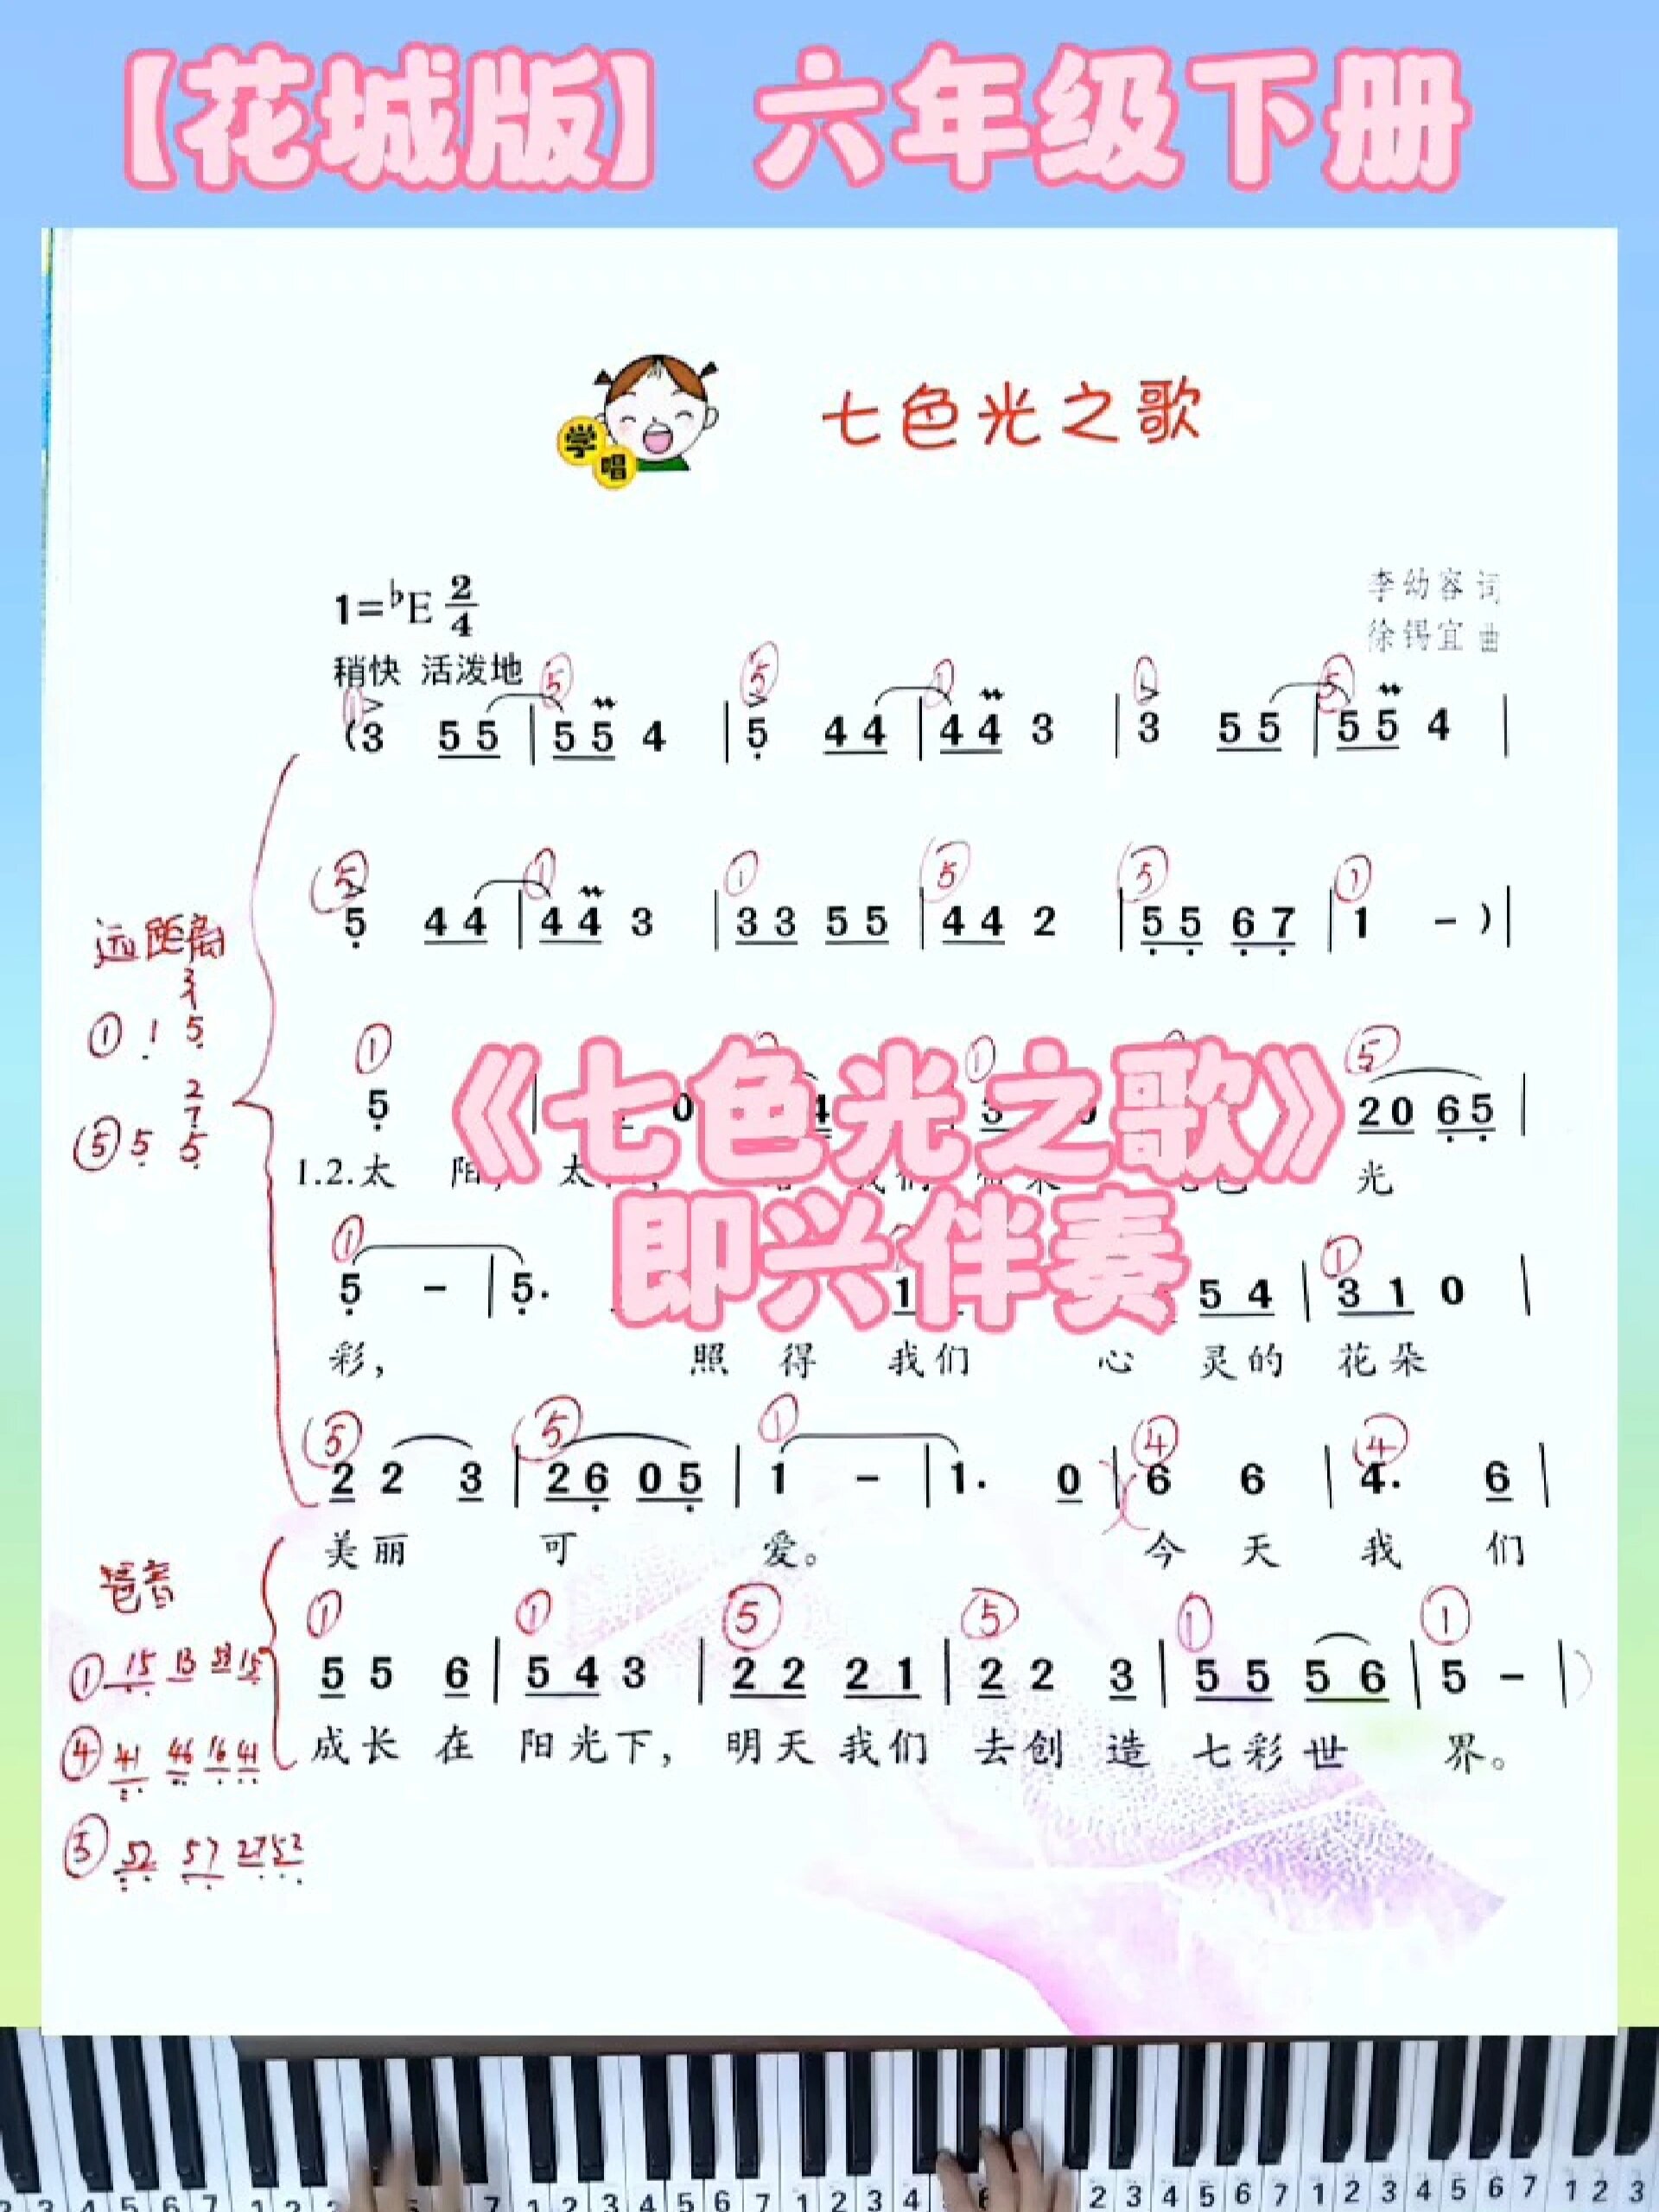 【花城版】 六年级下册
学唱 七色光之歌
1=♭E 2/4
李幼容 词
徐锡宜 曲
稍快 活泼地
① ⑤ ⑤ ① ① ⑤
(3 5 5 | 5 5 4 | 5 4 4 | 4 4 3 | 3 5 5 | 5 5 4 |
⑤ ① ① ⑤ ⑤ ①
5 4 4 | 4 4 3 | 3 3 5 5 | 4 4 2 | 5 5 6 7 | 1 - ) |
远距离
① 1 3 5
⑤ 5 2 7 5
① ① ⑤
5 | 0 4 3 0 2 0 6 5 |
《七色光之歌》
1.2.太 阳, 太 光
即兴伴奏
① ①
5 - | 5. 1 5 4 | 3 1 0 |
彩, 照 得 我们 心 灵的 花朵
⑤ ⑤ ① ④ ④
2 2 3 | 2 6 0 5 | 1 - | 1. 0 | 6 6 | 4. 6 |
美丽 可 爱。 今 天 我 们
琶音
① ① ⑤ ⑤ ① ①
5 5 6 | 5 4 3 | 2 2 2 1 | 2 2 3 | 5 5 5 6 | 5 - |
成长 在 阳光下, 明天我们 去创 造 七彩世 界。
① 15 13 53 15
④ 41 46 16 41
⑤ 52 57 27 52